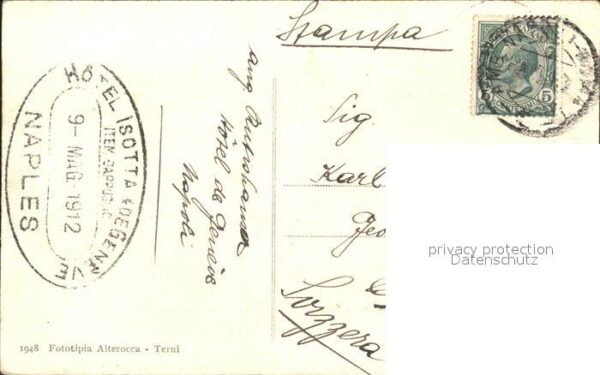 Stampa
Sig.
Karl
Geo
Svizzera
Hôtel de Genève
Napoli
HOTEL ISOTTA & DE GENÈVE
9- MAG. 1912
NAPLES
5
privacy protection
Datenschutz
1948 Fototipia Alterocca - Terni